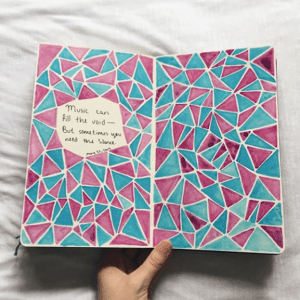 Music can
fill the void —
But sometimes you
need the silence.